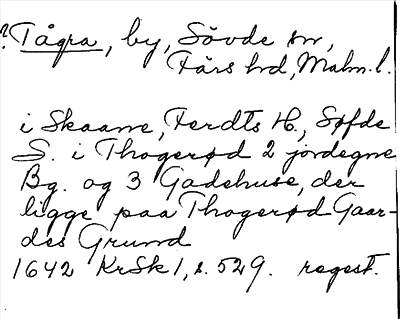 ? Tågra, by, Sövde sn,
Färs hd, Malm. l.
i Skaane, Ferdts H., Søfde
S. i Thogerød 2 jordegne
Bg. og 3 Gadehuse, der
ligge paa Thogerød Gaar-
des Grund
1642 KrSk 1, s. 529. regest.